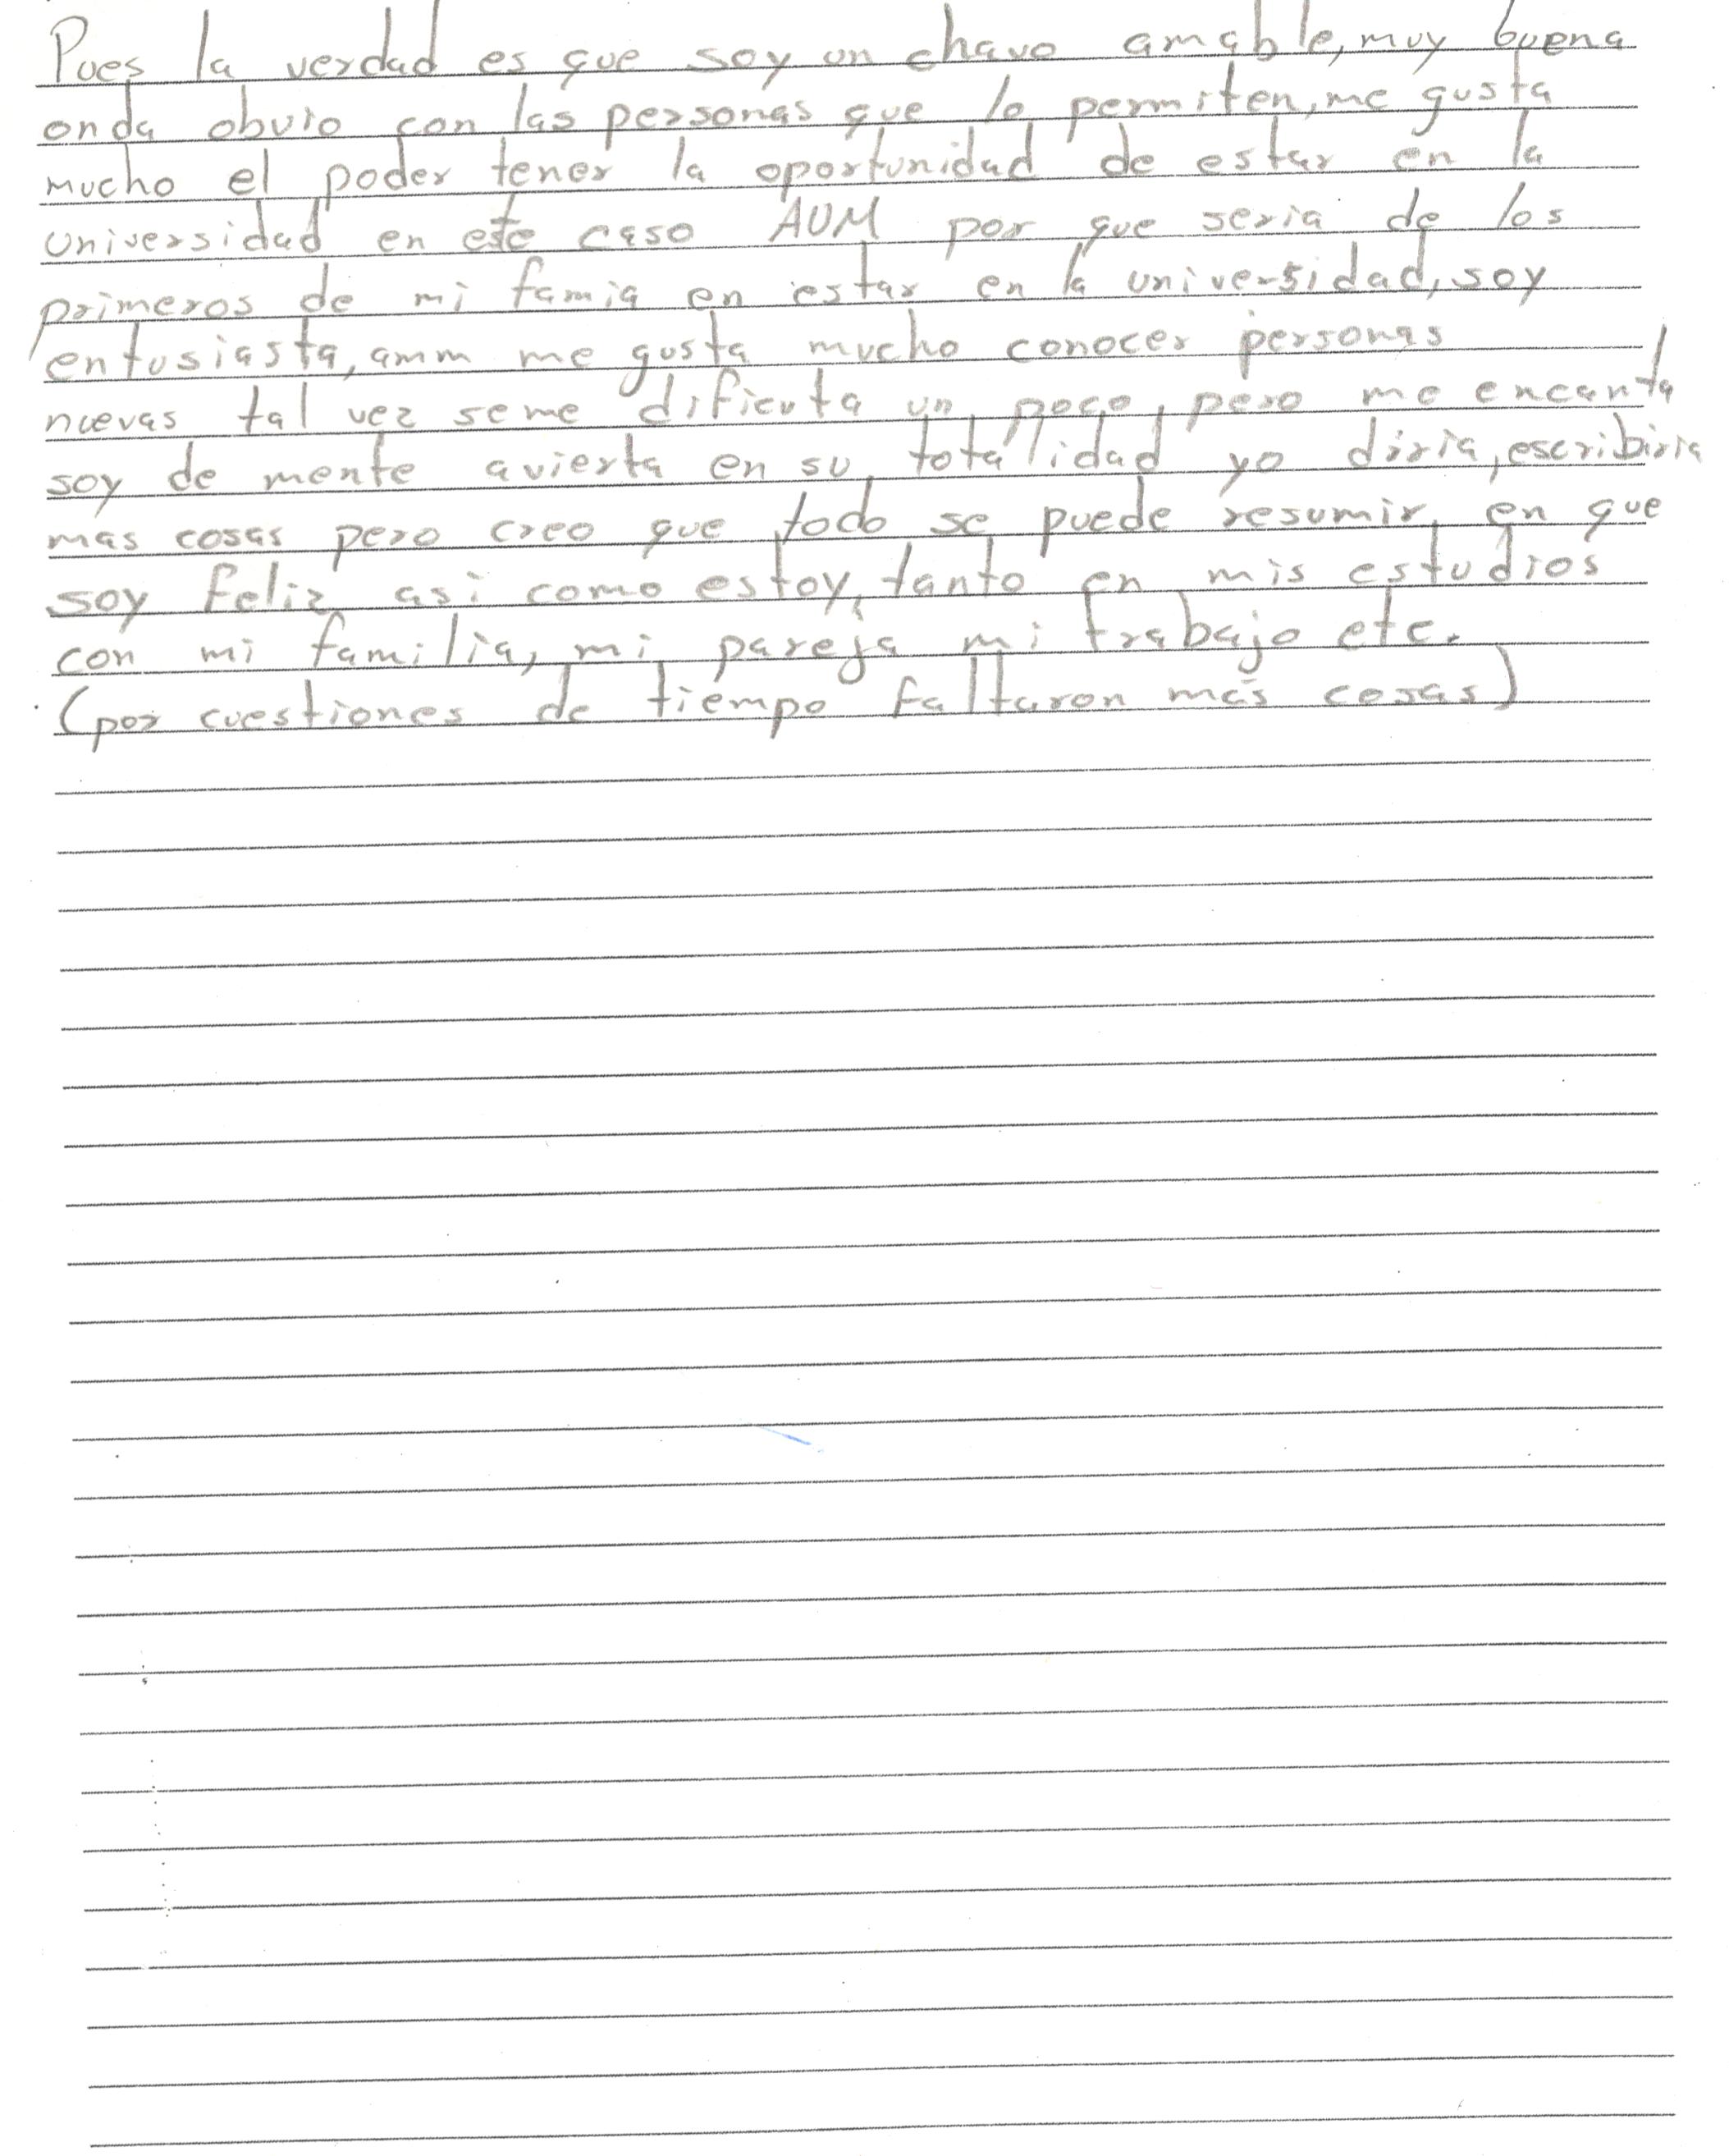 Pues la verdad es que soy un chavo amable, muy buena
onda obvio con las personas que lo permiten, me gusta
mucho el poder tener la oportunidad de estar en la
universidad en este caso AUM por que seria de los
primeros de mi famia en estar en la universidad, soy
entusiasta, amm me gusta mucho conocer personas
nuevas tal vez seme dificuta un poco, pero me encanta
soy de mente avierta en su totalidad yo diria, escribiria
mas cosas pero creo que todo se puede resumir en que
soy feliz asi como estoy, tanto en mis estudios
con mi familia, mi pareja mi trabajo etc.
(por cuestiones de tiempo faltaron más cosas)